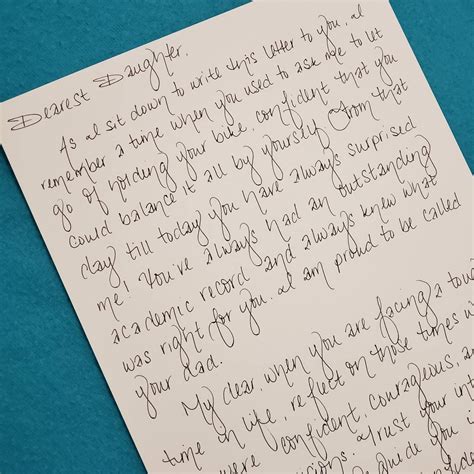 Dearest Daughter,
As I sit down to write this letter to you, I
remember a time when you used to ask me to let
go of holding your bike, confident that you
could balance it all by yourself. From that
day till today you have always surprised
me! You've always had an outstanding
academic record and always knew what
was right for you. I am proud to be called
your dad.
My dear, when you are facing a
time in life, reflect on those times
were confident, courageous,
Trust your
guide